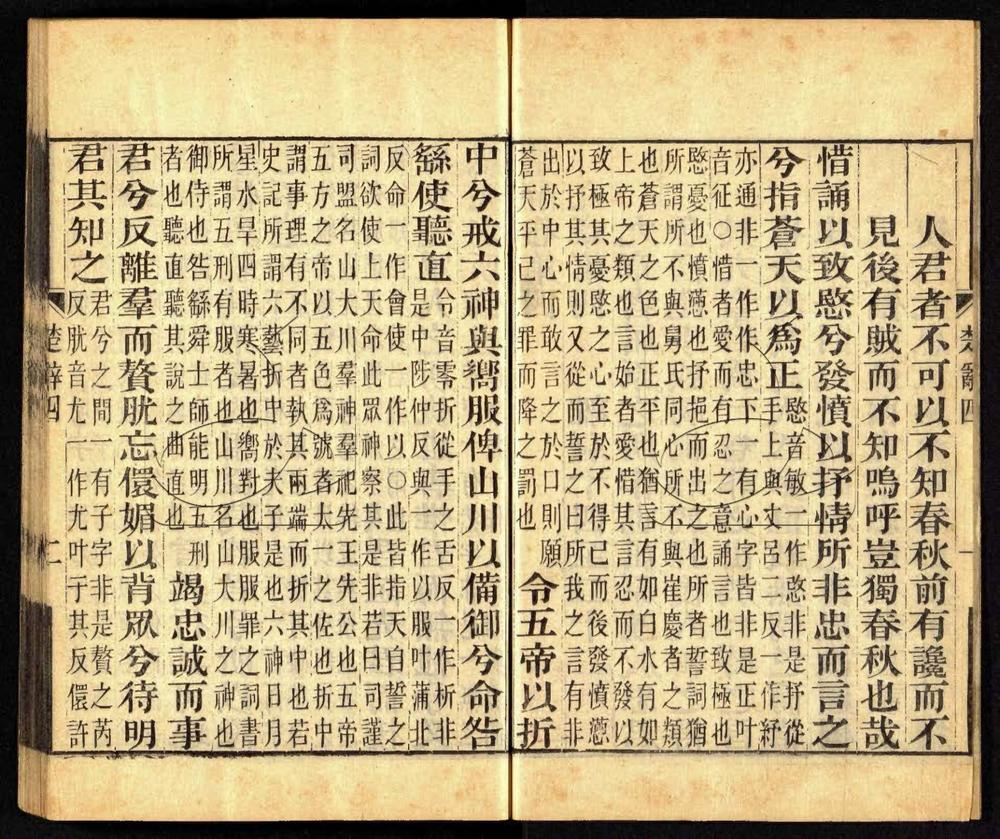 人君者不可以不知春秋前有讒而不
見後有賊而不知嗚呼豈獨春秋也哉
惜誦以致愍兮發憤以抒情所非忠而言之
兮指蒼天以爲正
愍音敏一作慜非是抒從
手上與丈呂二反一作紓
亦通非一作作忠下一有心字皆非是正叶
音征〇惜者愛而有忍之意誦言也致極也
愍憂也憤懣也抒挹而出之也所者誓詞猶
所謂所不與舅氏同心所不與崔慶者之類
也蒼天之色也正平也猶言有如白水有如
上帝之類也言始者愛惜其言忍而不發以
致極其憂愍之心至於不得已而後發憤懣
以抒其情則又從而誓之曰所我之言有非
出於中心而敢言之於口則願
蒼天平己之罪而降之罰也
令五帝以折
楚辭四 一
中兮戒六神與嚮服俾山川以備御兮命咎
繇使聽直
令音零折從手之舌反一作析非
是中陟仲反與一作以服叶蒲北
反命一作會使一作以〇此皆指天自誓之
詞欲使上天命此眾神察其是非若曰司謹
司盟名山大川羣神羣祀先王先公也五帝
五方之帝以五色爲號者太一之佐也折中
謂事理有不同者執其兩端而折其中也若
史記所謂六藝折中於夫子是也六神日月
星水旱四時寒暑也嚮對也服服罪之詞書
所謂五刑有服者也山川名山大川之神也
御侍也咎繇舜士師能明五刑
者也聽直聽其說之曲直也
竭忠誠而事
君兮反離羣而贅肬忘儇媚以背眾兮待明
君其知之
君兮之間一有子字非是贅之芮
反肬音尤一作尤叶于其反儇許
楚辭四 二